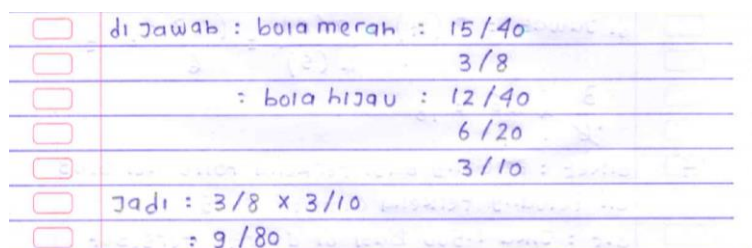 di Jawab : bola merah : 15/40
3/8
: bola hijau : 12/40
6/20
3/10
Jadi : 3/8 x 3/10
: 9/80